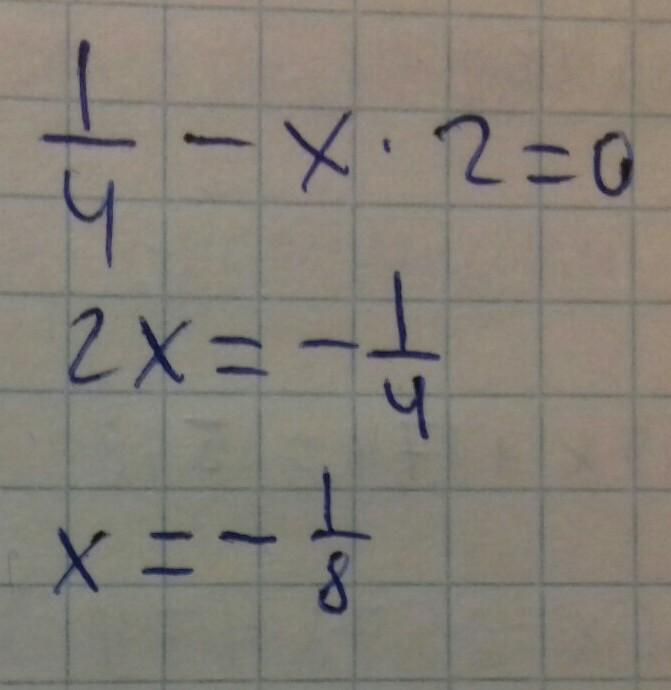 1/4 - x · 2 = 0
2x = - 1/4
x = - 1/8